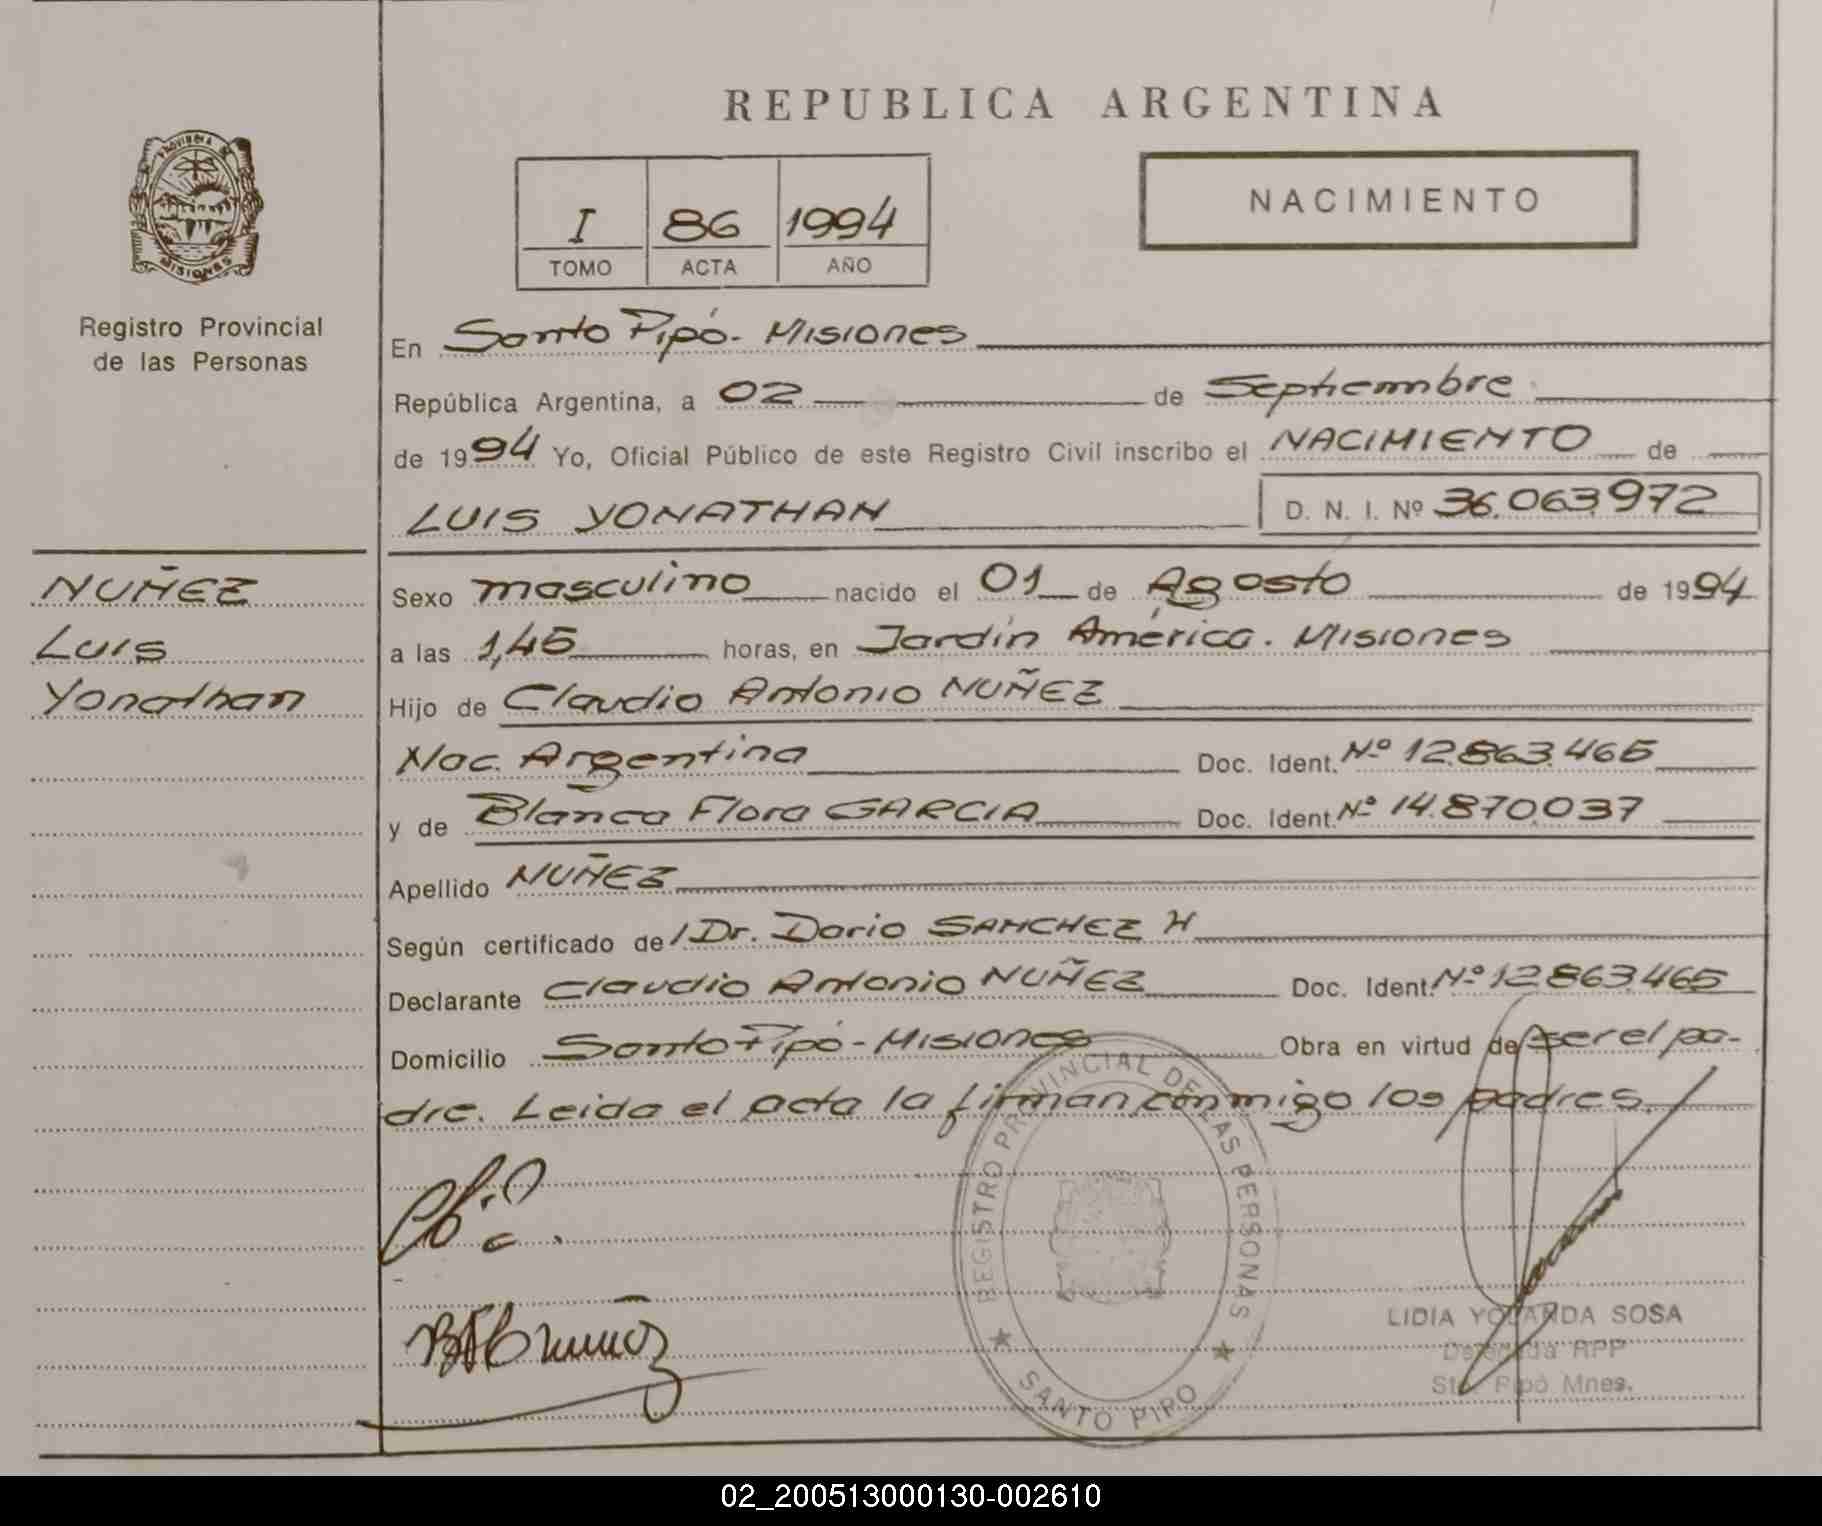 REPUBLICA ARGENTINA
PROVINCIA DE
MISIONES
Registro Provincial
de las Personas
I 86 1994
TOMO ACTA AÑO
NACIMIENTO
En Santo Pipó - Misiones
República Argentina, a 02 de Septiembre
de 1994 Yo, Oficial Público de este Registro Civil inscribo el NACIMIENTO de
LUIS YONATHAN D. N. I. Nº 36.063.972
NUÑEZ
Luis
Yonathan
Sexo masculino nacido el 01 de Agosto de 1994
a las 1,45 horas, en Jardín América. Misiones
Hijo de Claudio Antonio NUÑEZ
Nac. Argentina Doc. Ident. Nº 12.863.465
y de Blanca Flora GARCIA Doc. Ident. Nº 14.870.037
Apellido NUÑEZ
Según certificado de / Dr. Dario SANCHEZ H
Declarante Claudio Antonio NUÑEZ Doc. Ident. Nº 12.863.465
Domicilio Santo Pipó - Misiones Obra en virtud de ser el pa-
dre. Leida el acta la firman conmigo los padres.
REGISTRO PROVINCIAL DE LAS PERSONAS
SANTO PIPO
LIDIA YOLANDA SOSA
Delegada RPP
Sto. Pipó Mnes.
02_200513000130-002610